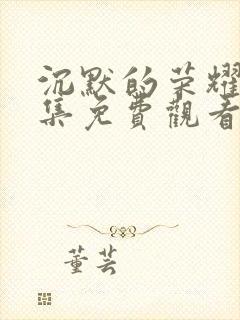 沉默的荣耀
集免費觀看
董芸